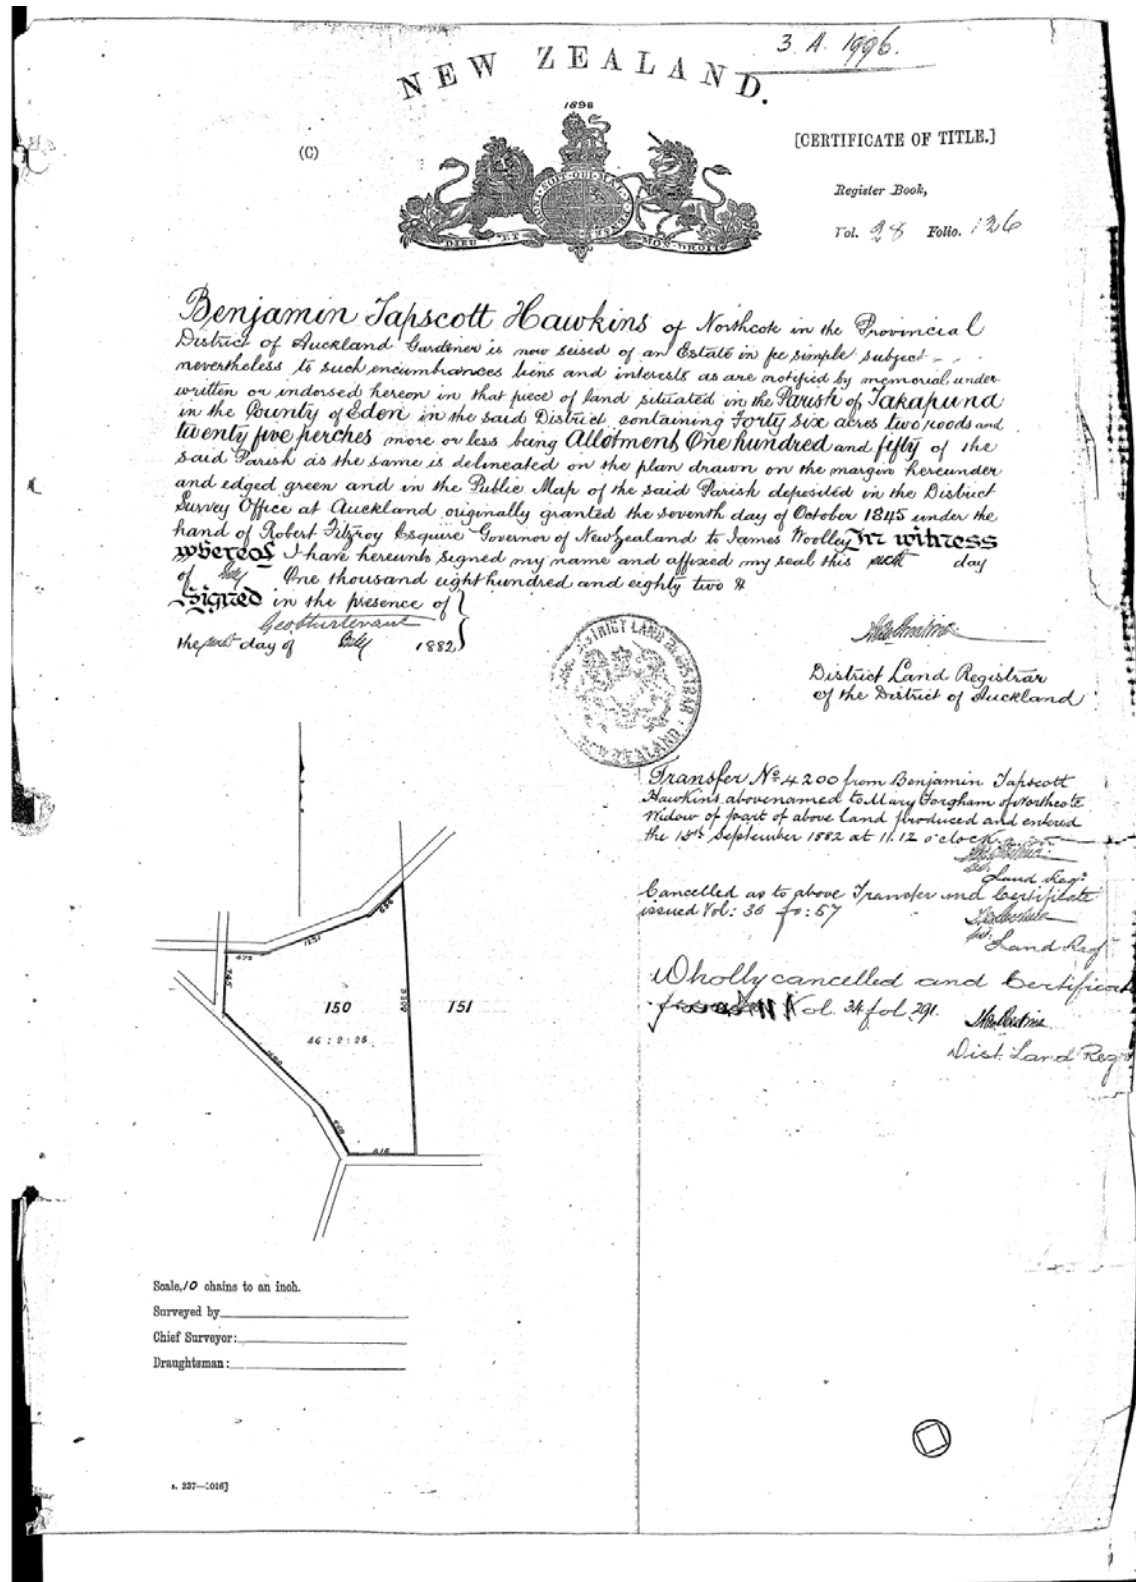 3. A. 1996.
NEW ZEALAND.
1898
(C)
[CERTIFICATE OF TITLE.]
HONI·SOIT·QUI·MAL·Y·PENSE
DIEU ET MON DROIT
Register Book,
Vol. 28 Folio. 126
Benjamin Tapscott Hawkins of Northcote in the Provincial
District of Auckland Gardener is now seised of an Estate in fee simple subject
nevertheless to such encumbrances liens and interests as are notified by memorial under
written or indorsed hereon in that piece of land situated in the Parish of Takapuna
in the County of Eden in the said District containing Forty six acres two roods and
twenty five perches more or less being Allotment One hundred and fifty of the
said Parish as the same is delineated on the plan drawn on the margin hereunder
and edged green and in the Public Map of the said Parish deposited in the District
Survey Office at Auckland originally granted the seventh day of October 1845 under the
hand of Robert Fitzroy Esquire Governor of New Zealand to James Woolley In witness
whereof I have hereunto signed my name and affixed my seal this day
of July One thousand eight hundred and eighty two
Signed in the presence of
Geo Sturtevant
the day of July 1882
DISTRICT LAND REGISTRAR
NEW ZEALAND
District Land Registrar
of the District of Auckland
Transfer No 4200 from Benjamin Tapscott
Hawkins abovenamed to Mary Forgham of Northcote
Widow of part of above land produced and entered
the 13th September 1882 at 11.12 o'clock
Land Regr
Cancelled as to above Transfer and Certificate
issued Vol: 36 fo: 57
Land Regr
Wholly cancelled and Certificate
Vol. 34 fol. 291.
Dist. Land Regr
1231
472
745
150
151
46 : 2 : 25
616
Scale, 10 chains to an inch.
Surveyed by
Chief Surveyor:
Draughtsman:
s. 237—[016]